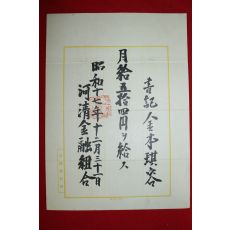 書記 金本琪容
月給五拾四円ヲ給ス
昭和十七年十二月三十一日
河清金融組合